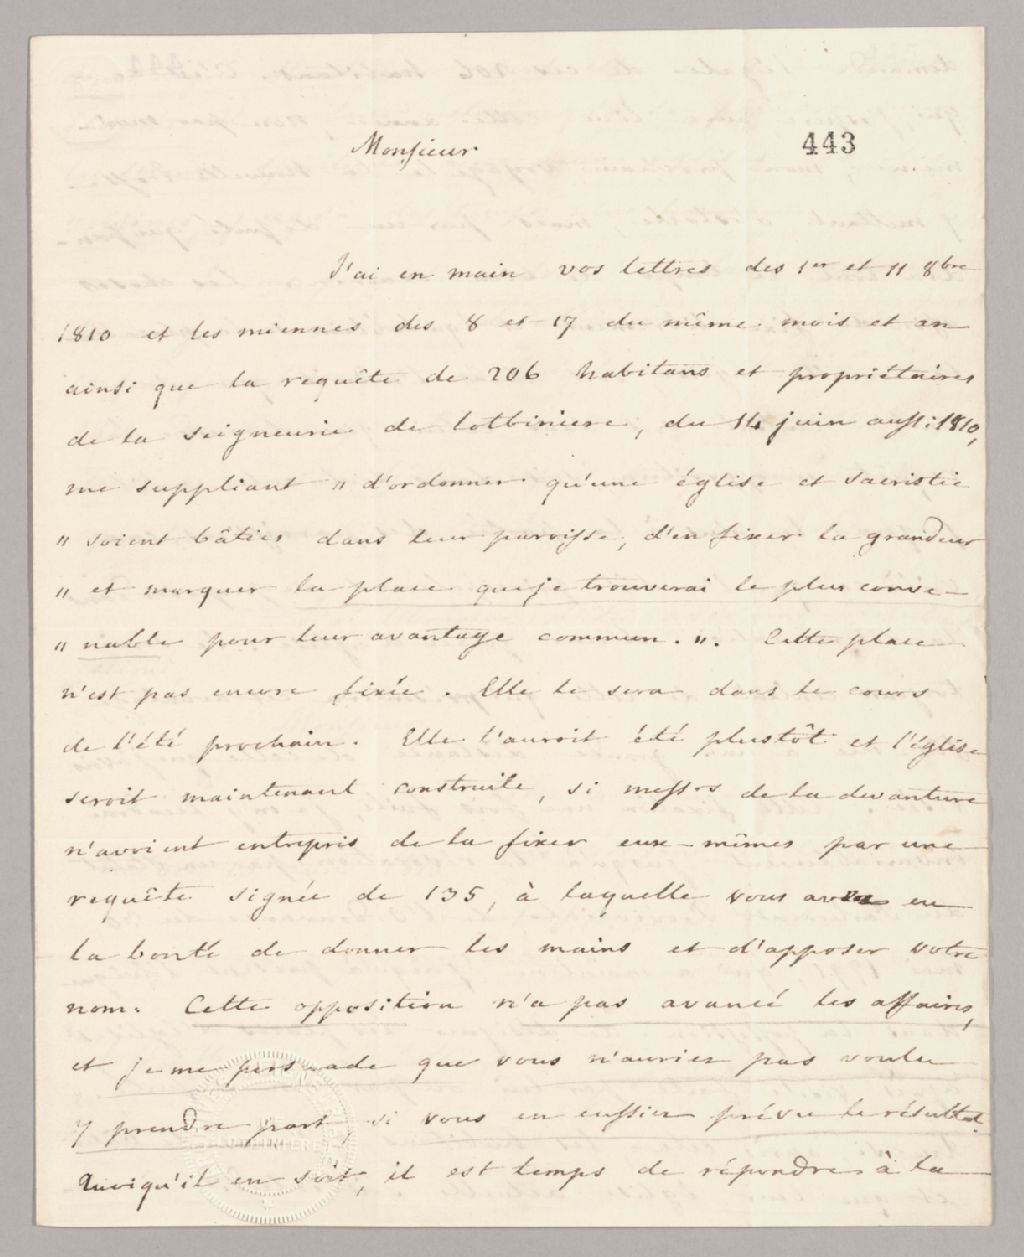 Monsieur
443
J'ai en main vos lettres des 1er et 11 8bre
1810 et les miennes des 8 et 17 du même mois et an
ainsi que la requête de 206 habitans et propriétaires
de la Seigneurie de Lotbiniere, du 14 juin aussi 1810,
me suppliant " d'ordonner qu'une église et sacristie
" soient bâties dans leur paroisse, d'en fixer la grandeur
" et marquer la place que je trouverai le plus conve-
" nable pour leur avantage commun. ". Cette place
n'est pas encore fixée. Elle le sera dans le cours
de l'été prochain. Elle l'auroit été plustôt et l'église
seroit maintenant construite, si messrs de la devanture
n'avoient entrepris de la fixer eux-mêmes par une
requête signée de 135, à laquelle vous avez eu
la bonté de donner les mains et d'apposer votre
nom. Cette opposition n'a pas avancé les affaires,
et je me persuade que vous n'auriez pas voulu
y prendre part, si vous en eussiez prévu le résultat.
Quoiqu'il en soit, il est temps de répondre à la